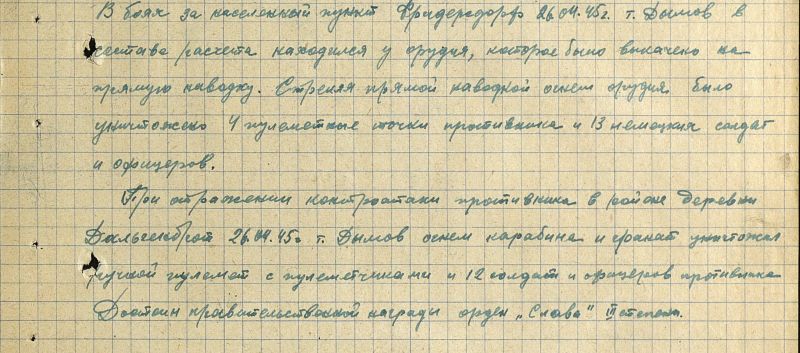 В боях за населенный пункт Фридерсдорф 26.04.45г. т. Дымов в
составе расчета находился у орудия, которое было выкачено на
прямую наводку. Стреляя прямой наводкой огнем орудия было
уничтожено 4 пулеметные точки противника и 13 немецких солдат
и офицеров.
При отражении контратаки противника в районе деревни
26.04.45г т. Дымов огнем карабина и гранат уничтожил
ручной пулемет с пулеметчиками и 12 солдат и офицеров противника
Достоин правительственной награды орден „Слава" III степени.